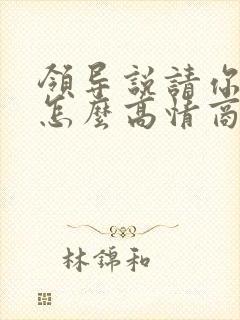 領导説請你
怎麼高情商
林錦和